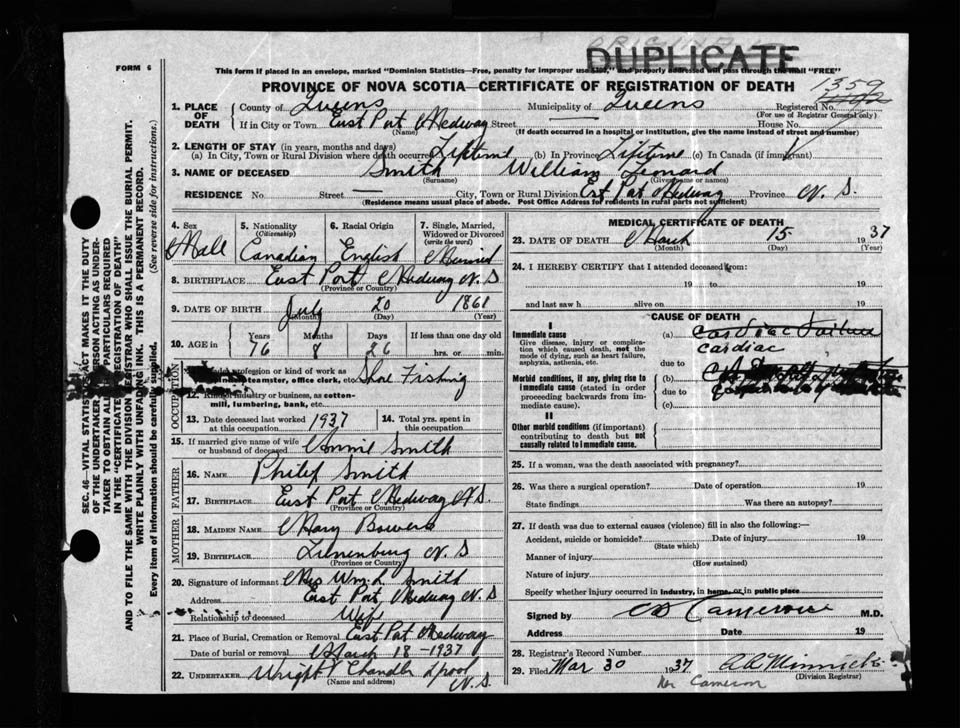 DUPLICATE
FORM 6
This form if placed in an envelope, marked "Dominion Statistics—Free, penalty for improper use $300," and properly addressed will pass through the mail "FREE"
PROVINCE OF NOVA SCOTIA—CERTIFICATE OF REGISTRATION OF DEATH
1359
1. PLACE OF DEATH County of Queens Municipality of Queens Registered No.
(For use of Registrar General only)
If in City or Town East Port Medway Street House No.
(Name) (If death occurred in a hospital or institution, give the name instead of street and number)
2. LENGTH OF STAY (in years, months and days)
(a) In City, Town or Rural Division where death occurred Lifetime (b) In Province Lifetime (c) In Canada (if immigrant)
3. NAME OF DECEASED Smith William Leonard
(Surname) (Given name or names)
RESIDENCE No. Street City, Town or Rural Division East Port Medway Province N. S.
(Residence means usual place of abode. Post Office Address for residents in rural parts not sufficient)
4. Sex 5. Nationality (Citizenship) 6. Racial Origin 7. Single, Married, Widowed or Divorced (write the word)
Male Canadian English Married
8. BIRTHPLACE East Port Medway N. S
(Province or Country)
9. DATE OF BIRTH July 20 1861
(Month) (Day) (Year)
10. AGE in Years Months Days If less than one day old
76 8 26 hrs. or min.
OCCUPATION
profession or kind of work as teamster, office clerk, etc. Shore Fishing
12. Kind of industry or business, as cotton-mill, lumbering, bank, etc.
13. Date deceased last worked at this occupation 1937 14. Total yrs. spent in this occupation
15. If married give name of wife or husband of deceased Annie Smith
FATHER
16. NAME Philip Smith
17. BIRTHPLACE East Port Medway N.S.
(Province or Country)
MOTHER
18. MAIDEN NAME Mary Bowers
19. BIRTHPLACE Lunenburg N. S
(Province or Country)
20. Signature of informant Mrs Wm. L Smith
Address East Port Medway N. S
Relationship to deceased Wife
21. Place of Burial, Cremation or Removal East Port Medway
Date of burial or removal March 18 - 1937
22. UNDERTAKER Wright Chandler Lpool N. S.
(Name and address)
MEDICAL CERTIFICATE OF DEATH
23. DATE OF DEATH March 15 1937
(Month) (Day) (Year)
24. I HEREBY CERTIFY that I attended deceased from:
19 to 19
and last saw h alive on 19
CAUSE OF DEATH
I
Immediate cause (a) Cardiac Failure
Give disease, injury or complication which caused death, not the mode of dying, such as heart failure, asphyxia, asthenia, etc.
cardiac
due to
Morbid conditions, if any, giving rise to immediate cause (stated in order proceeding backwards from immediate cause). (b)
due to
(c)
II
Other morbid conditions (if important) contributing to death but not causally related to immediate cause.
25. If a woman, was the death associated with pregnancy?
26. Was there a surgical operation? Date of operation 19
State findings Was there an autopsy?
27. If death was due to external causes (violence) fill in also the following:—
Accident, suicide or homicide? Date of injury 19
(State which)
Manner of injury
(How sustained)
Nature of injury
Specify whether injury occurred in industry, in home, or in public place
Signed by Cameron M.D.
Address Date 19
28. Registrar's Record Number
29. Filed Mar 30 1937
(Division Registrar)
Cameron
SEC. 46—VITAL STATISTICS ACT MAKES IT THE DUTY OF THE UNDERTAKER OR PERSON ACTING AS UNDERTAKER TO OBTAIN ALL THE PARTICULARS REQUIRED IN THE "CERTIFICATE OF REGISTRATION OF DEATH" AND TO FILE THE SAME WITH THE DIVISION REGISTRAR WHO SHALL ISSUE THE BURIAL PERMIT.
WRITE PLAINLY WITH UNFADING INK. THIS IS A PERMANENT RECORD.
Every item of information should be carefully supplied. (See reverse side for instructions.)